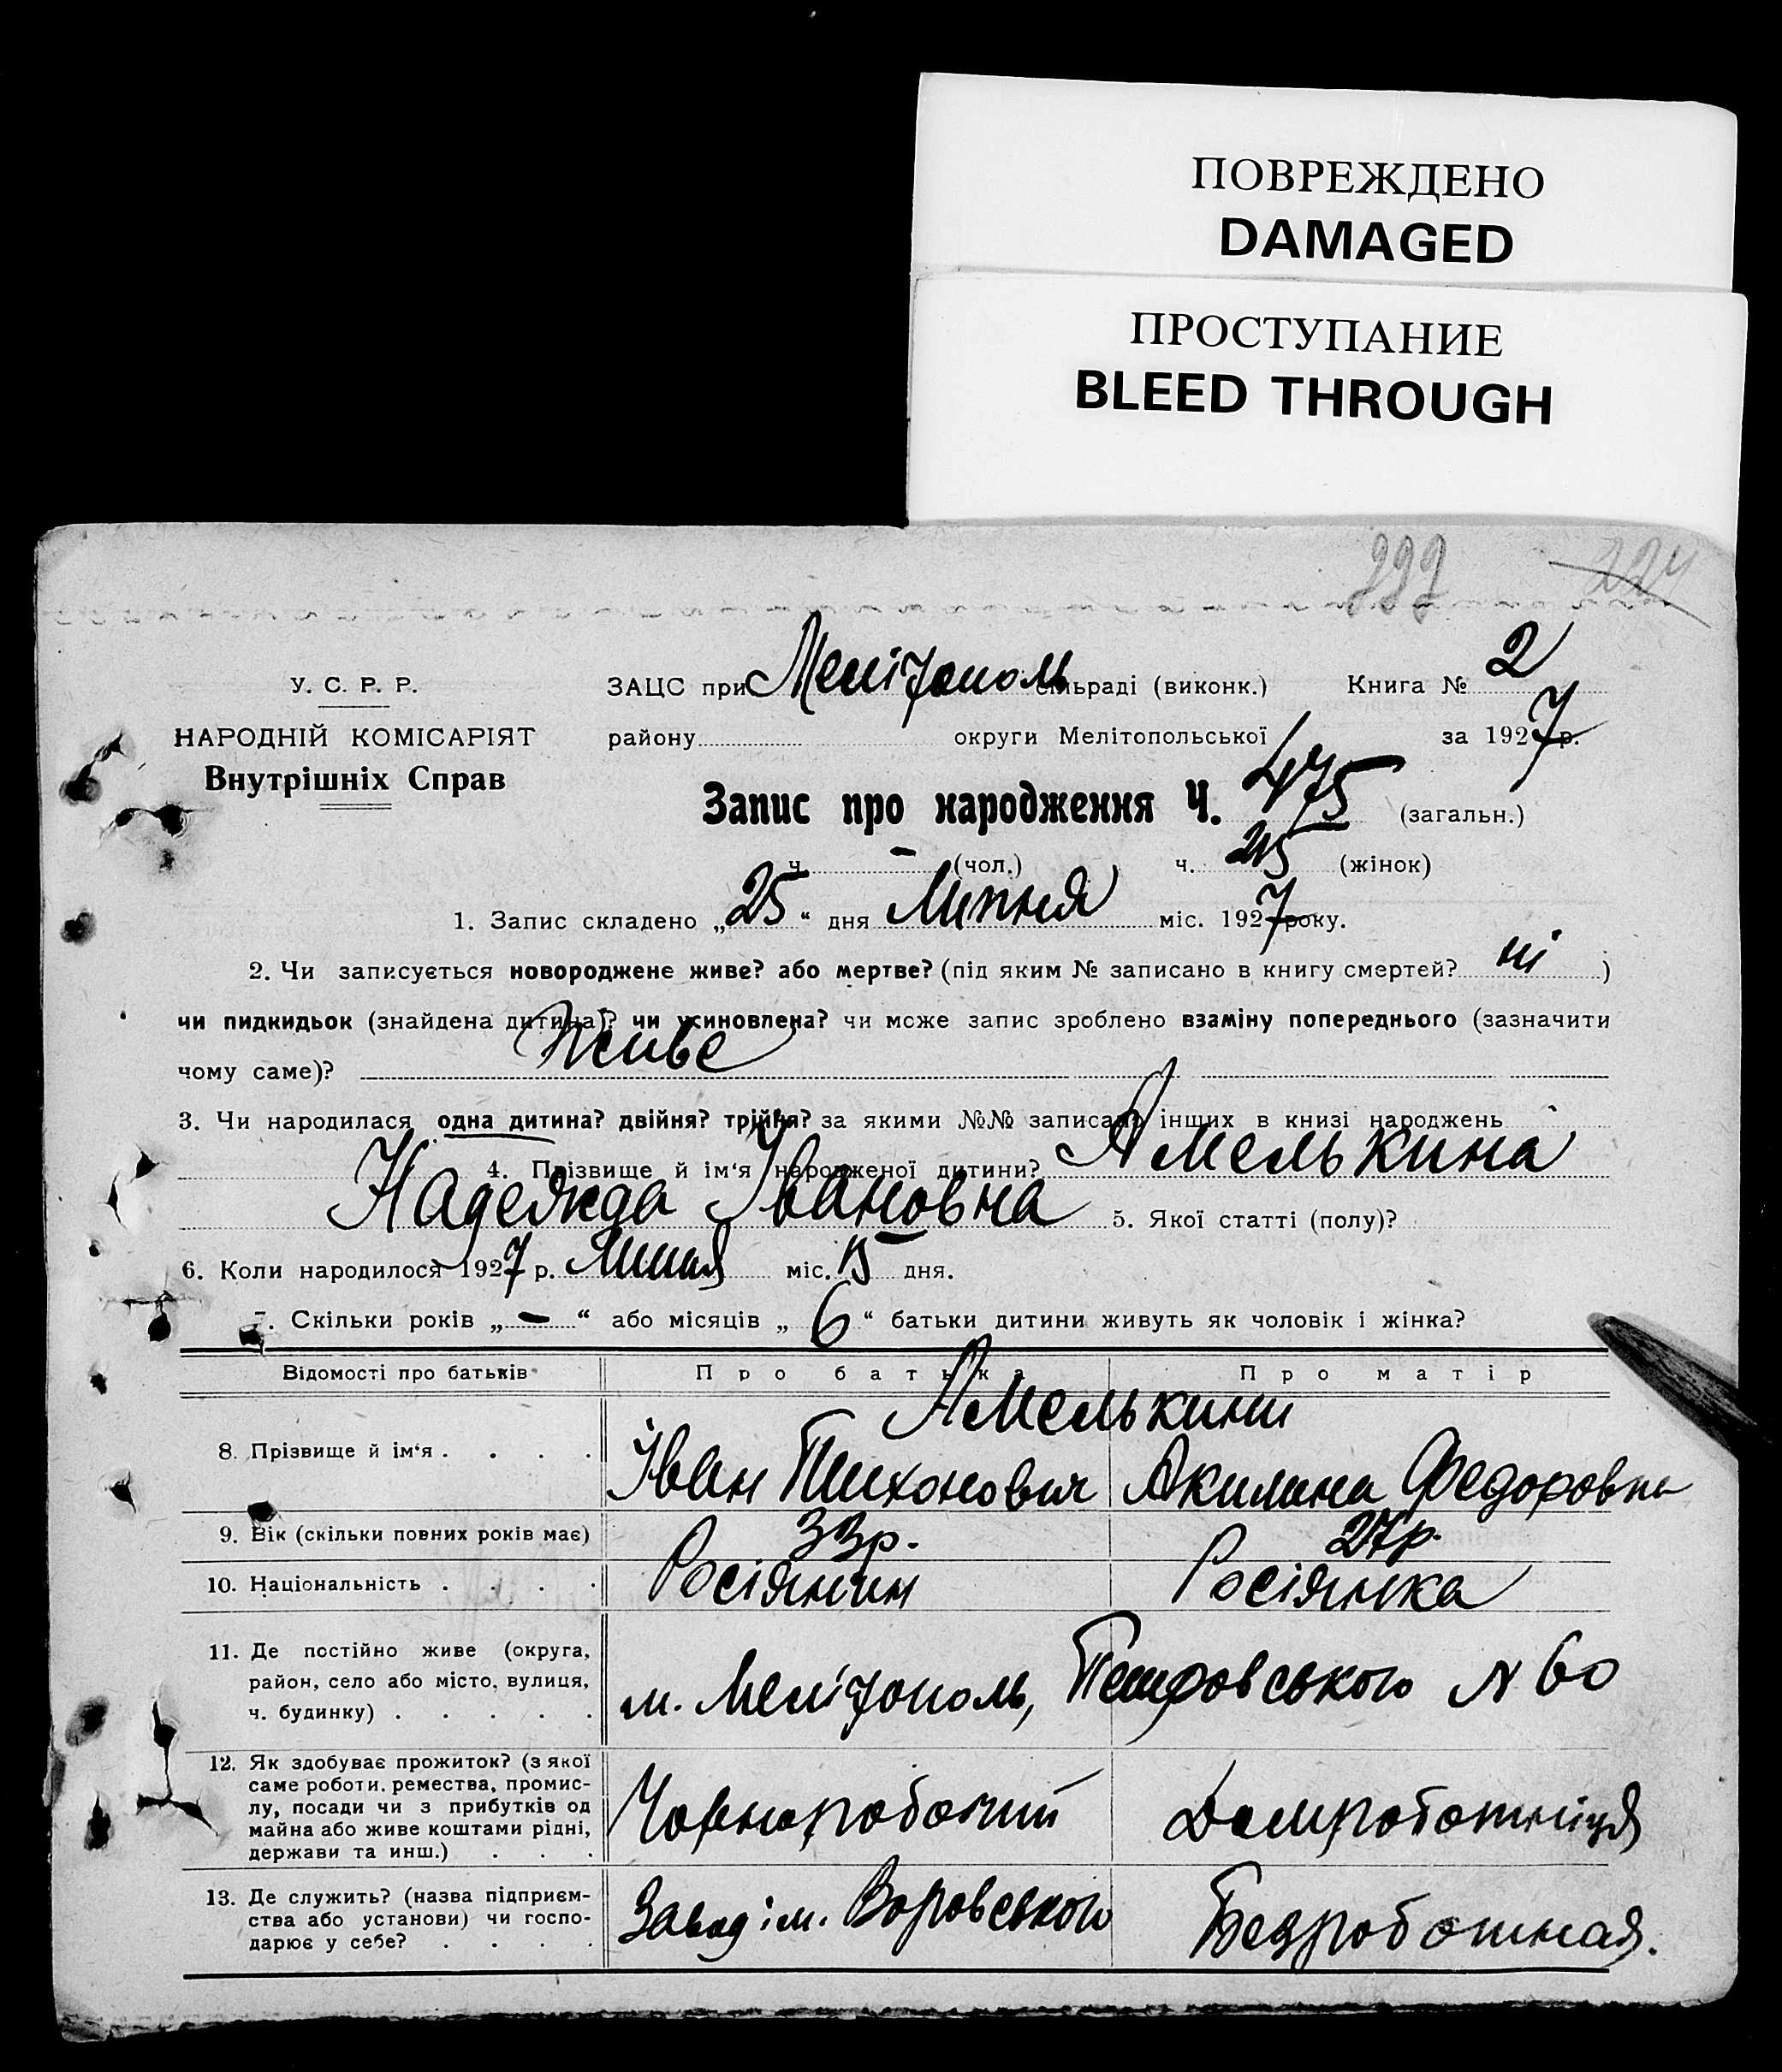 ПОВРЕЖДЕНО
DAMAGED
ПРОСТУПАНИЕ
BLEED THROUGH
224
У. С. Р. Р.
НАРОДНІЙ КОМІСАРІЯТ
Внутрішніх Справ
ЗАЦС при Мелітополь сільраді (виконк.) Книга № 2
району округи Мелітопольської за 1927 р.
Запис про народження Ч. 475 (загальн.)
ч. – (чол.) ч. (жінок)
1. Запис складено „25“ дня Липня міс. 1927 року.
2. Чи записується новороджене живе? або мертве? (під яким № записано в книгу смертей? ні )
чи пидкидьок (знайдена дитина)? чи усиновлена? чи може запис зроблено взаміну попереднього (зазначити
чому саме)? Живе
3. Чи народилася одна дитина? двійня? трійня? за якими №№ записано інших в книзі народжень
4. Прізвище й ім‘я народженої дитини? Амелькина
Надежда Івановна 5. Якої статті (полу)?
6. Коли народилося 1927 р. Липня міс. 15 дня.
7. Скільки років „–“ або місяців „6“ батьки дитини живуть як чоловік і жінка?
Відомості про батьків Про батька Про матір
Амелькини
8. Прізвище й ім‘я . . . . Іван Тихонович Акилина Федоровна
9. Вік (скільки повних років має) 33р. 27р.
10. Національність . . . . Росіянин Росіянка
11. Де постійно живе (округа,
район, село або місто, вулиця,
ч. будинку) . . . . . м. Мелітополь, Петровського № 60
12. Як здобуває прожиток? (з якої
саме роботи, ремества, промис-
лу, посади чи з прибутків од
майна або живе коштами рідні,
держави та инш.) . . . Чорноробочий Домроботниця
13. Де служить? (назва підприєм-
ства або установи) чи госпо-
дарює у себе? . . . . Завод ім. Воровського Безроботная.